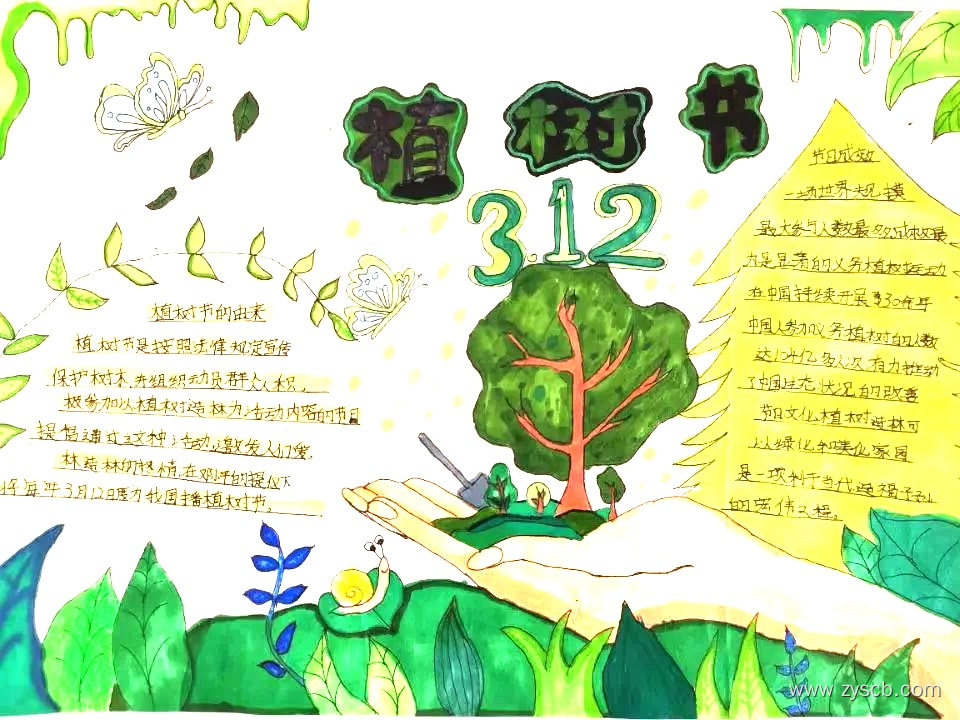 植树节
3.12
植树节的由来
植树节是按照法律规定宣传
保护树木,并组织动员群众积
极参加以植树造林为活动内容的节日
提倡通过这种活动,激发人们爱
林造林的热情,在邓的提仪下
将每年3月12日定为我国植树节。
节日成效
一场世界规模
最大参与人数最多,成效最
为显著的义务植树运动
在中国持续开展了30余年
中国人参加义务植树的人数
达124亿多人次有力推动
了中国生态状况的改善
节日文化植树造林可
以绿化和美化家园
是一项利于当代造福子孙
的宏伟工程。
www.zyscb.com